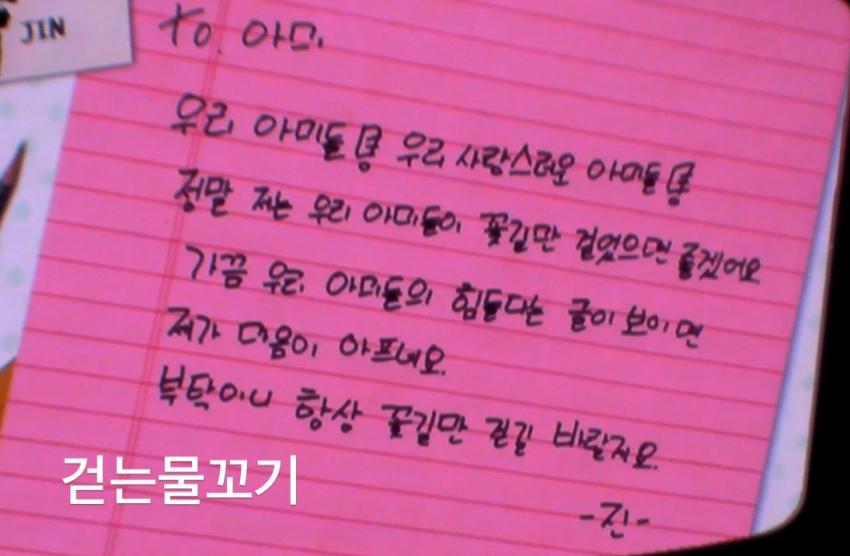 JIN
To. 아미
우리 아미들 우리 사랑스러운 아미들
정말 저는 우리 아미들이 꽃길만 걸었으면 좋겠어요
가끔 우리 아미들의 힘들다는 글이 보이면
저가 마음이 아프네요.
부탁이니 항상 꽃길만 걷길 바랄게요
-진-
걷는물꼬기